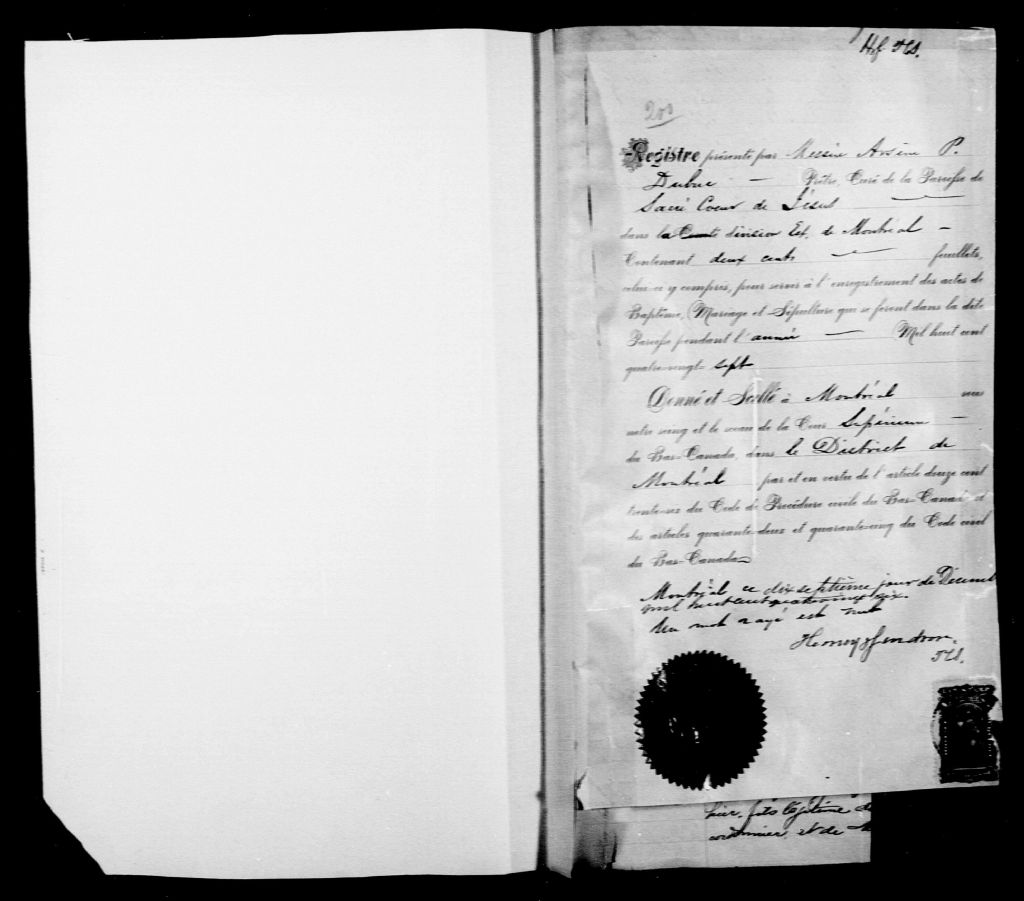 200
Registre présenté par Messire Arsène P.
Dubuc — Prêtre, Curé de la Paroisse de
Sacré Coeur de Jésus —
dans la Comté division Est. de Montréal —
Contenant deux cents — feuillets,
celui-ci y compris, pour servir à l'enregistrement des actes de
Baptême, Mariage et Sépulture qui se feront dans la dite
Paroisse pendant l'année — Mil huit cent
quatre-vingt-sept
Donné et Scellé à Montréal sous
notre seing et le sceau de la Cour Supérieure —
du Bas-Canada, dans le District de
Montréal par et en vertu de l'article douze cent
trente-six du Code de Procédure civile du Bas-Canada et
des articles quarante-deux et quarante-cinq du Code civil
du Bas-Canada
Montréal ce dix septième jour de Décemb
mil huit cent quatrevingt six.
Un mot rayé est nul
hier, fils légitime de
cordonnier, et de